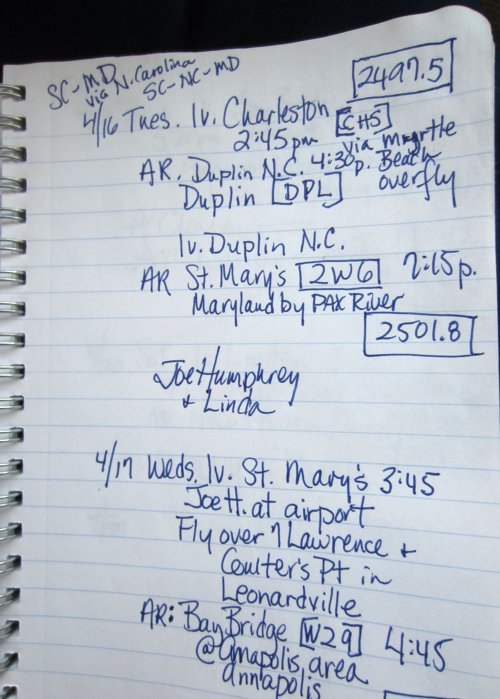 SC-MD
via N. Carolina
SC-NC-MD
2497.5
4/16 Tues. lv. Charleston [CHS]
2:45pm via Myrtle
AR. Duplin N.C. 4:30p. Beach
Duplin [DPL] overfly
lv. Duplin N.C.
AR St. Mary's [2W6] 7:15p.
Maryland by PAX River
2501.8
Joe Humphrey
+ Linda
4/17 Weds. lv. St. Mary's 3:45
Joe H. at airport
Fly over Lawrence +
Coulter's Pt in
Leonardville
AR: Bay Bridge [W29] 4:45
@ area
annapolis